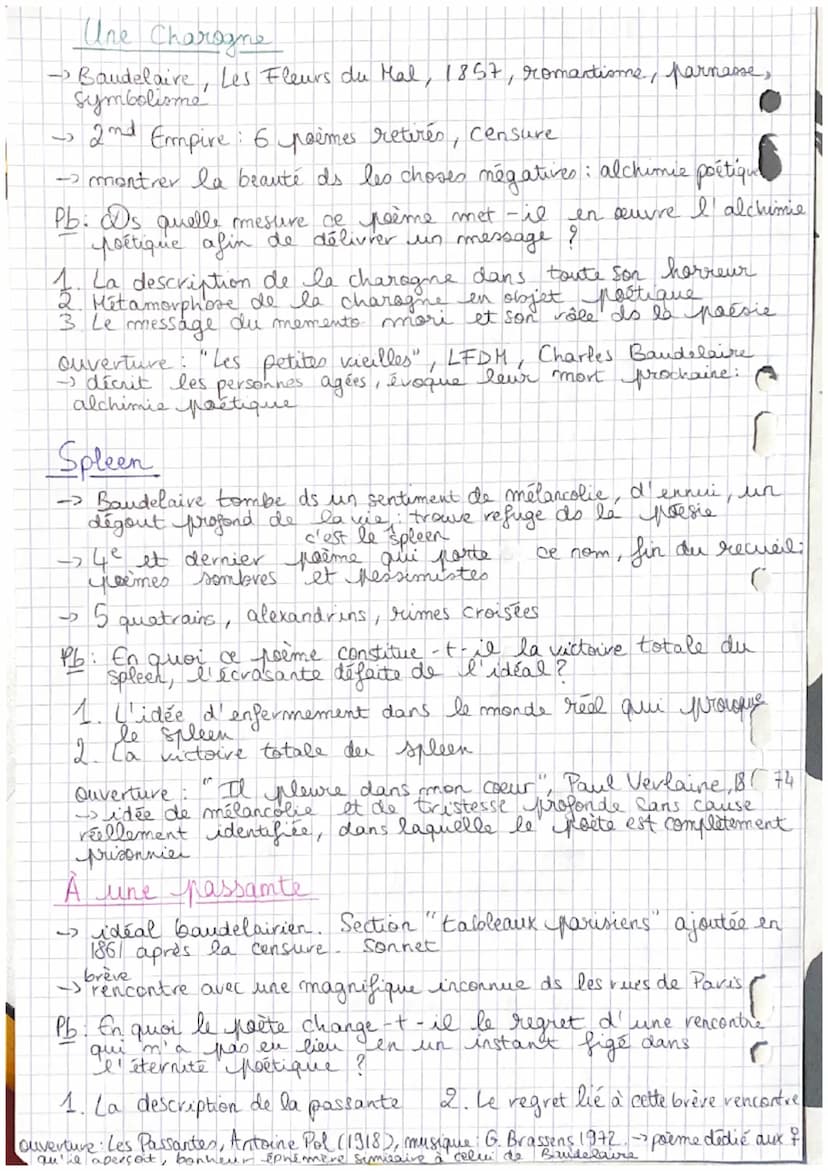 Une Charogne
-> Baudelaire, Les Fleurs du Mal, 1857, romantisme, parnasse,
symbolisme
-> 2nd Empire : 6 poèmes retirés, censure
-> montrer la beauté ds les choses négatives : alchimie poétique
Pb : Ds quelle mesure ce poème met-il en œuvre l'alchimie
poétique afin de délivrer un message ?
1. La description de la charogne dans toute son horreur
2. Métamorphose de la charogne en objet poétique
3 Le message du memento mori et son rôle ds la poésie
ouverture : "Les petites vieilles", LFDM, Charles Baudelaire
-> décrit les personnes agées, évoque leur mort prochaine :
alchimie poétique
Spleen
-> Baudelaire tombe ds un sentiment de mélancolie, d'ennui, un
dégout profond de la vie : trouve refuge ds la poésie
c'est le spleen
-> 4e et dernier poème qui porte ce nom, fin du recueil :
poèmes sombres et pessimistes
-> 5 quatrains, alexandrins, rimes croisées
Pb : En quoi ce poème constitue-t-il la victoire totale du
spleen, l'écrasante défaite de l'idéal ?
1. L'idée d'enfermement dans le monde réel qui provoque
le spleen
2. La victoire totale du spleen
ouverture : "Il pleure dans mon coeur", Paul Verlaine, 18 74
-> idée de mélancolie et de tristesse profonde sans cause
réellement identifiée, dans laquelle le poète est complètement
prisonnier
À une passante
-> idéal baudelairien. Section "tableaux parisiens" ajoutée en
1861 après la censure. Sonnet
brève
-> rencontre avec une magnifique inconnue ds les rues de Paris
Pb : En quoi le poète change-t-il le regret d'une rencontre
qui n'a pas eu lieu en un instant figé dans
l'éternité poétique ?
1. La description de la passante 2. Le regret lié à cette brève rencontre
ouverture : Les Passantes, Antoine Pol (1918), musique : G. Brassens 1972. -> poème dédié aux ♀
qu'il aperçoit, bonheur éphémère similaire à celui de Baudelaire